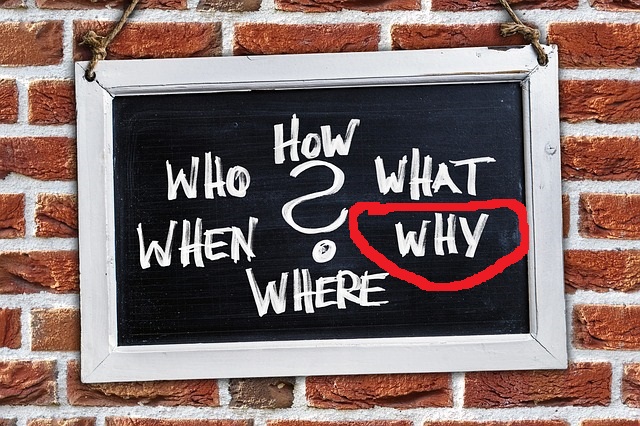 HOW
WHO ? WHAT
WHEN WHY
WHERE